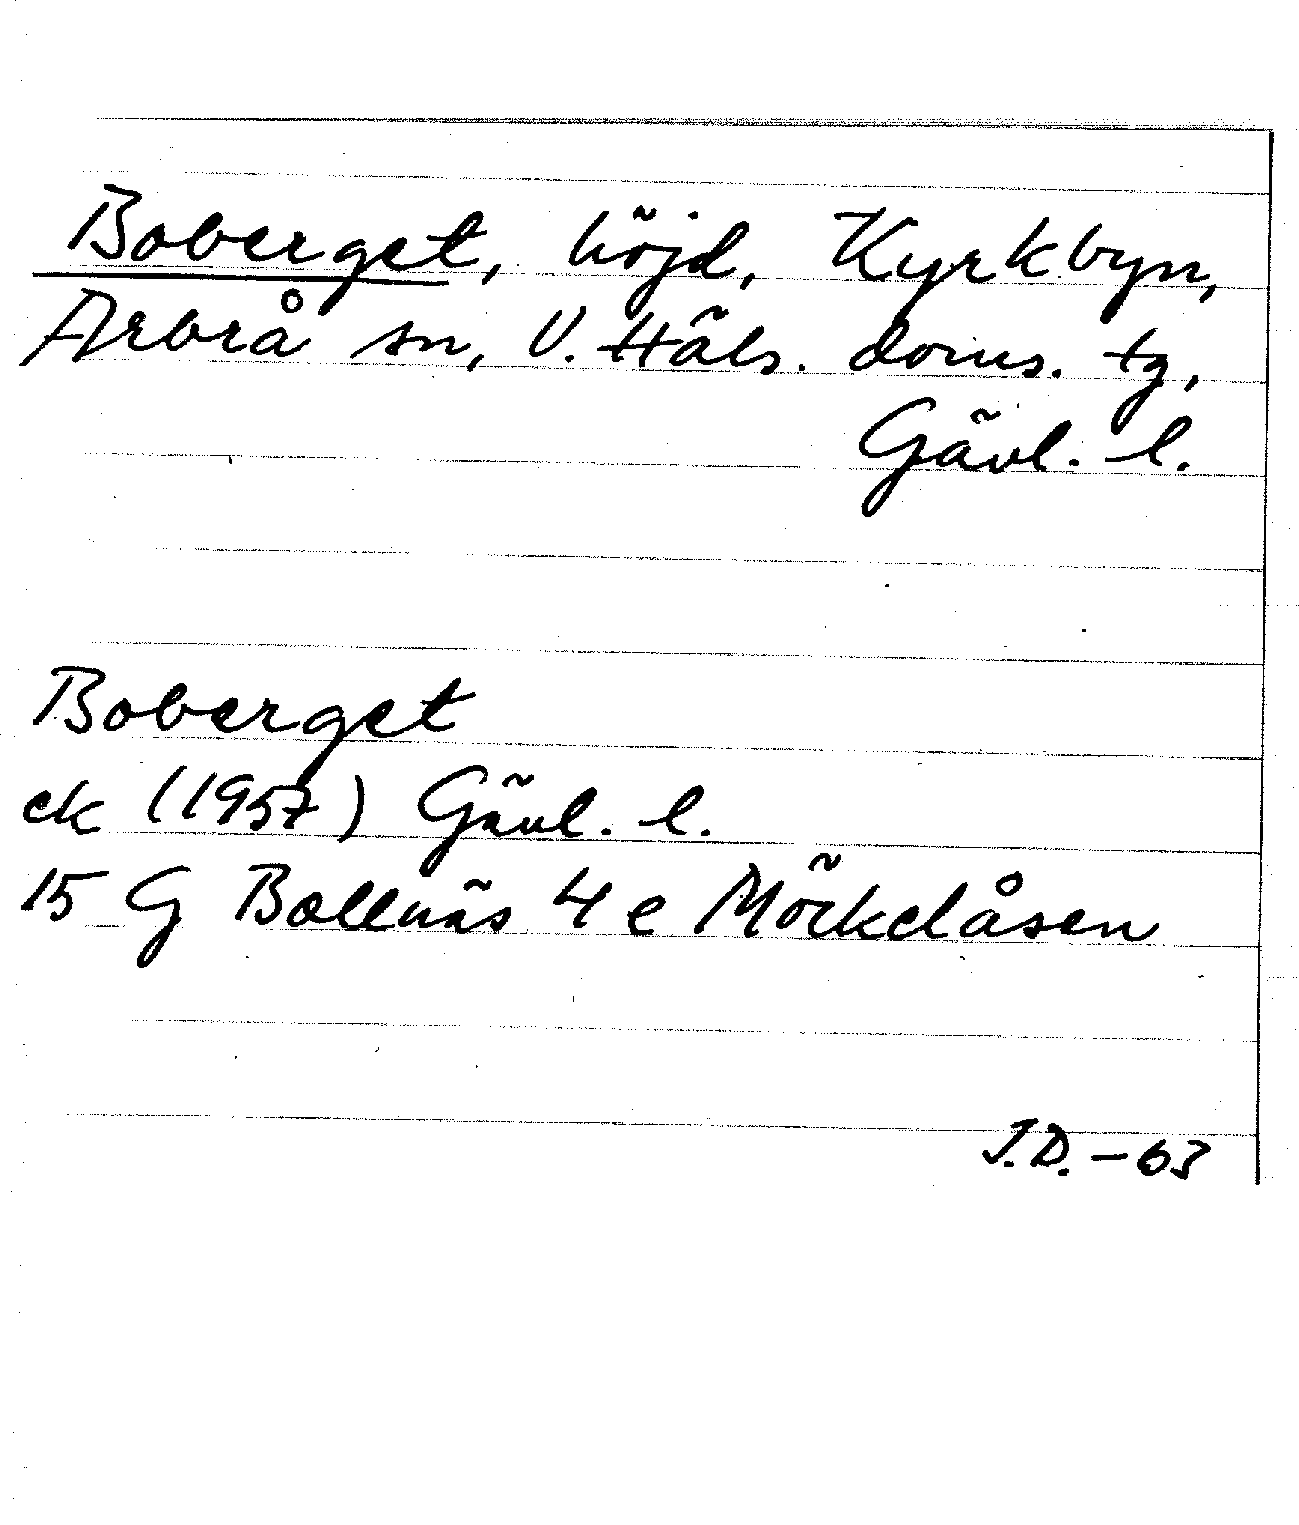 Boberget, höjd, Kyrkbyn,
Arbrå sn, V. Häls. doms. tg,
Gävl. l.
Boberget
ek (1957) Gävl. l.
15 G Bollnäs 4 e Möckelåsen
J.D. - 63